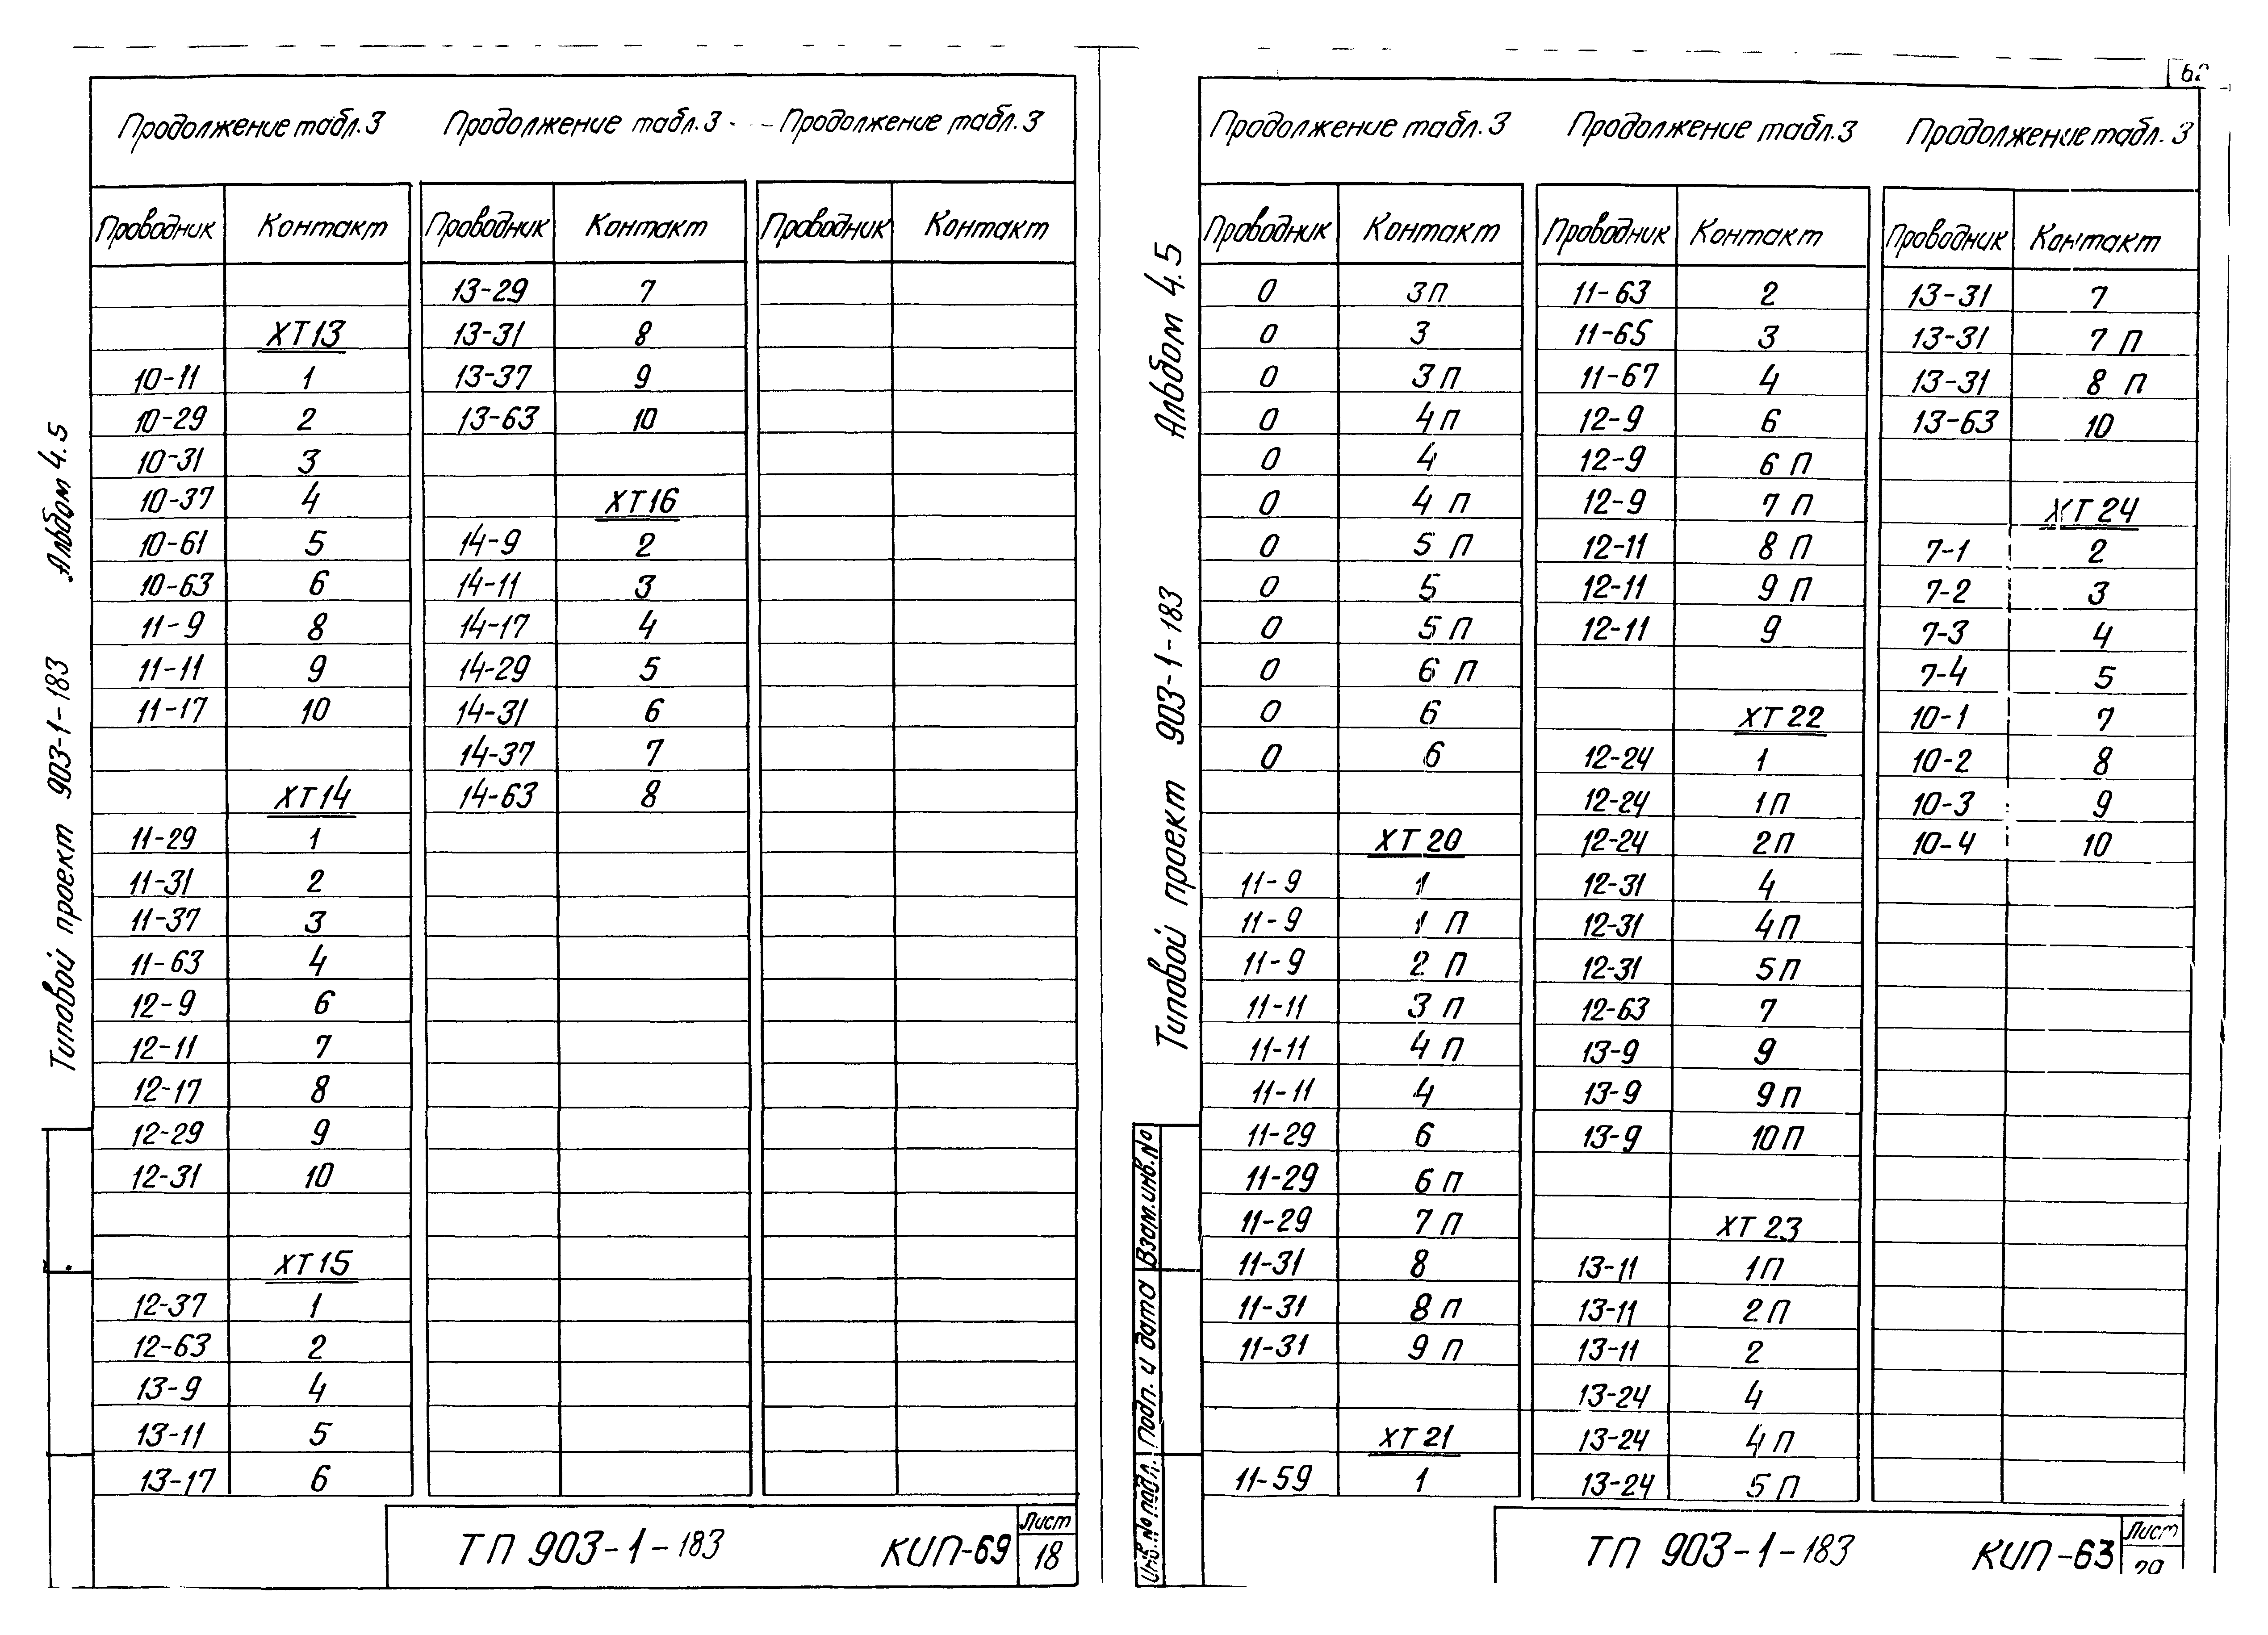 Альбом 4.5
Типовой проект 903-1-183
Продолжение табл.3
Проводник Контакт
ХТ13
10-11 1
10-29 2
10-31 3
10-37 4
10-61 5
10-63 6
11-9 8
11-11 9
11-17 10
ХТ14
11-29 1
11-31 2
11-37 3
11-63 4
12-9 6
12-11 7
12-17 8
12-29 9
12-31 10
ХТ15
12-37 1
12-63 2
13-9 4
13-11 5
13-17 6
Продолжение табл.3
Проводник Контакт
13-29 7
13-31 8
13-37 9
13-63 10
ХТ16
14-9 2
14-11 3
14-17 4
14-29 5
14-31 6
14-37 7
14-63 8
Продолжение табл.3
Проводник Контакт
ТП 903-1-183 КИП-69
Лист
18
62
Альбом 4.5
Типовой проект 903-1-183
Продолжение табл.3
Проводник Контакт
0 3П
0 3
0 3П
0 4П
0 4
0 4 П
0 5 П
0 5
0 5 П
0 6 П
0 6
0 6
ХТ20
11-9 1
11-9 1 П
11-9 2 П
11-11 3 П
11-11 4 П
11-11 4
11-29 6
11-29 6 П
11-29 7 П
11-31 8
11-31 8 П
11-31 9 П
ХТ21
11-59 1
Продолжение табл.3
Проводник Контакт
11-63 2
11-65 3
11-67 4
12-9 6
12-9 6 П
12-9 7 П
12-11 8 П
12-11 9 П
12-11 9
ХТ22
12-24 1
12-24 1П
12-24 2П
12-31 4
12-31 4П
12-31 5П
12-63 7
13-9 9
13-9 9П
13-9 10П
ХТ23
13-11 1П
13-11 2П
13-11 2
13-24 4
13-24 4П
13-24 5П
Продолжение табл.3
Проводник Контакт
13-31 7
13-31 7 П
13-31 8 П
13-63 10
ХТ24
7-1 2
7-2 3
7-3 4
7-4 5
10-1 7
10-2 8
10-3 9
10-4 10
Взам.инв.№
Подп. и дата
Инв.№ подл.
ТП 903-1-183 КИП-63
Лист